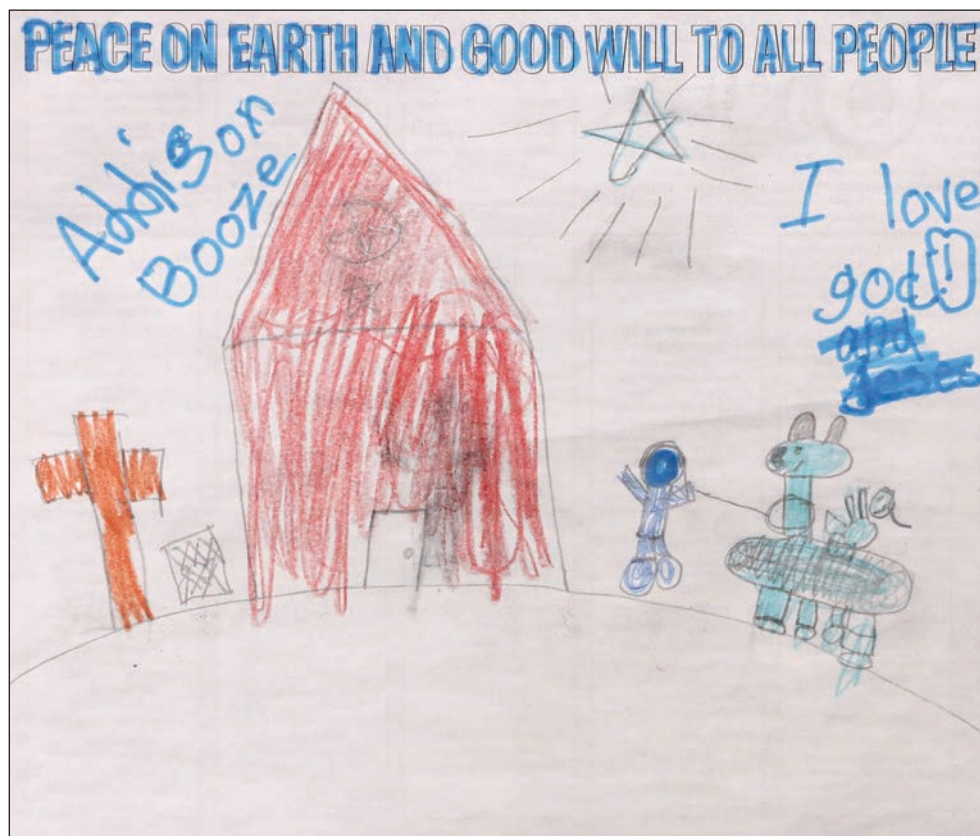 PEACE ON EARTH AND GOOD WILL TO ALL PEOPLE
Addison
Booze
I love
god!
and